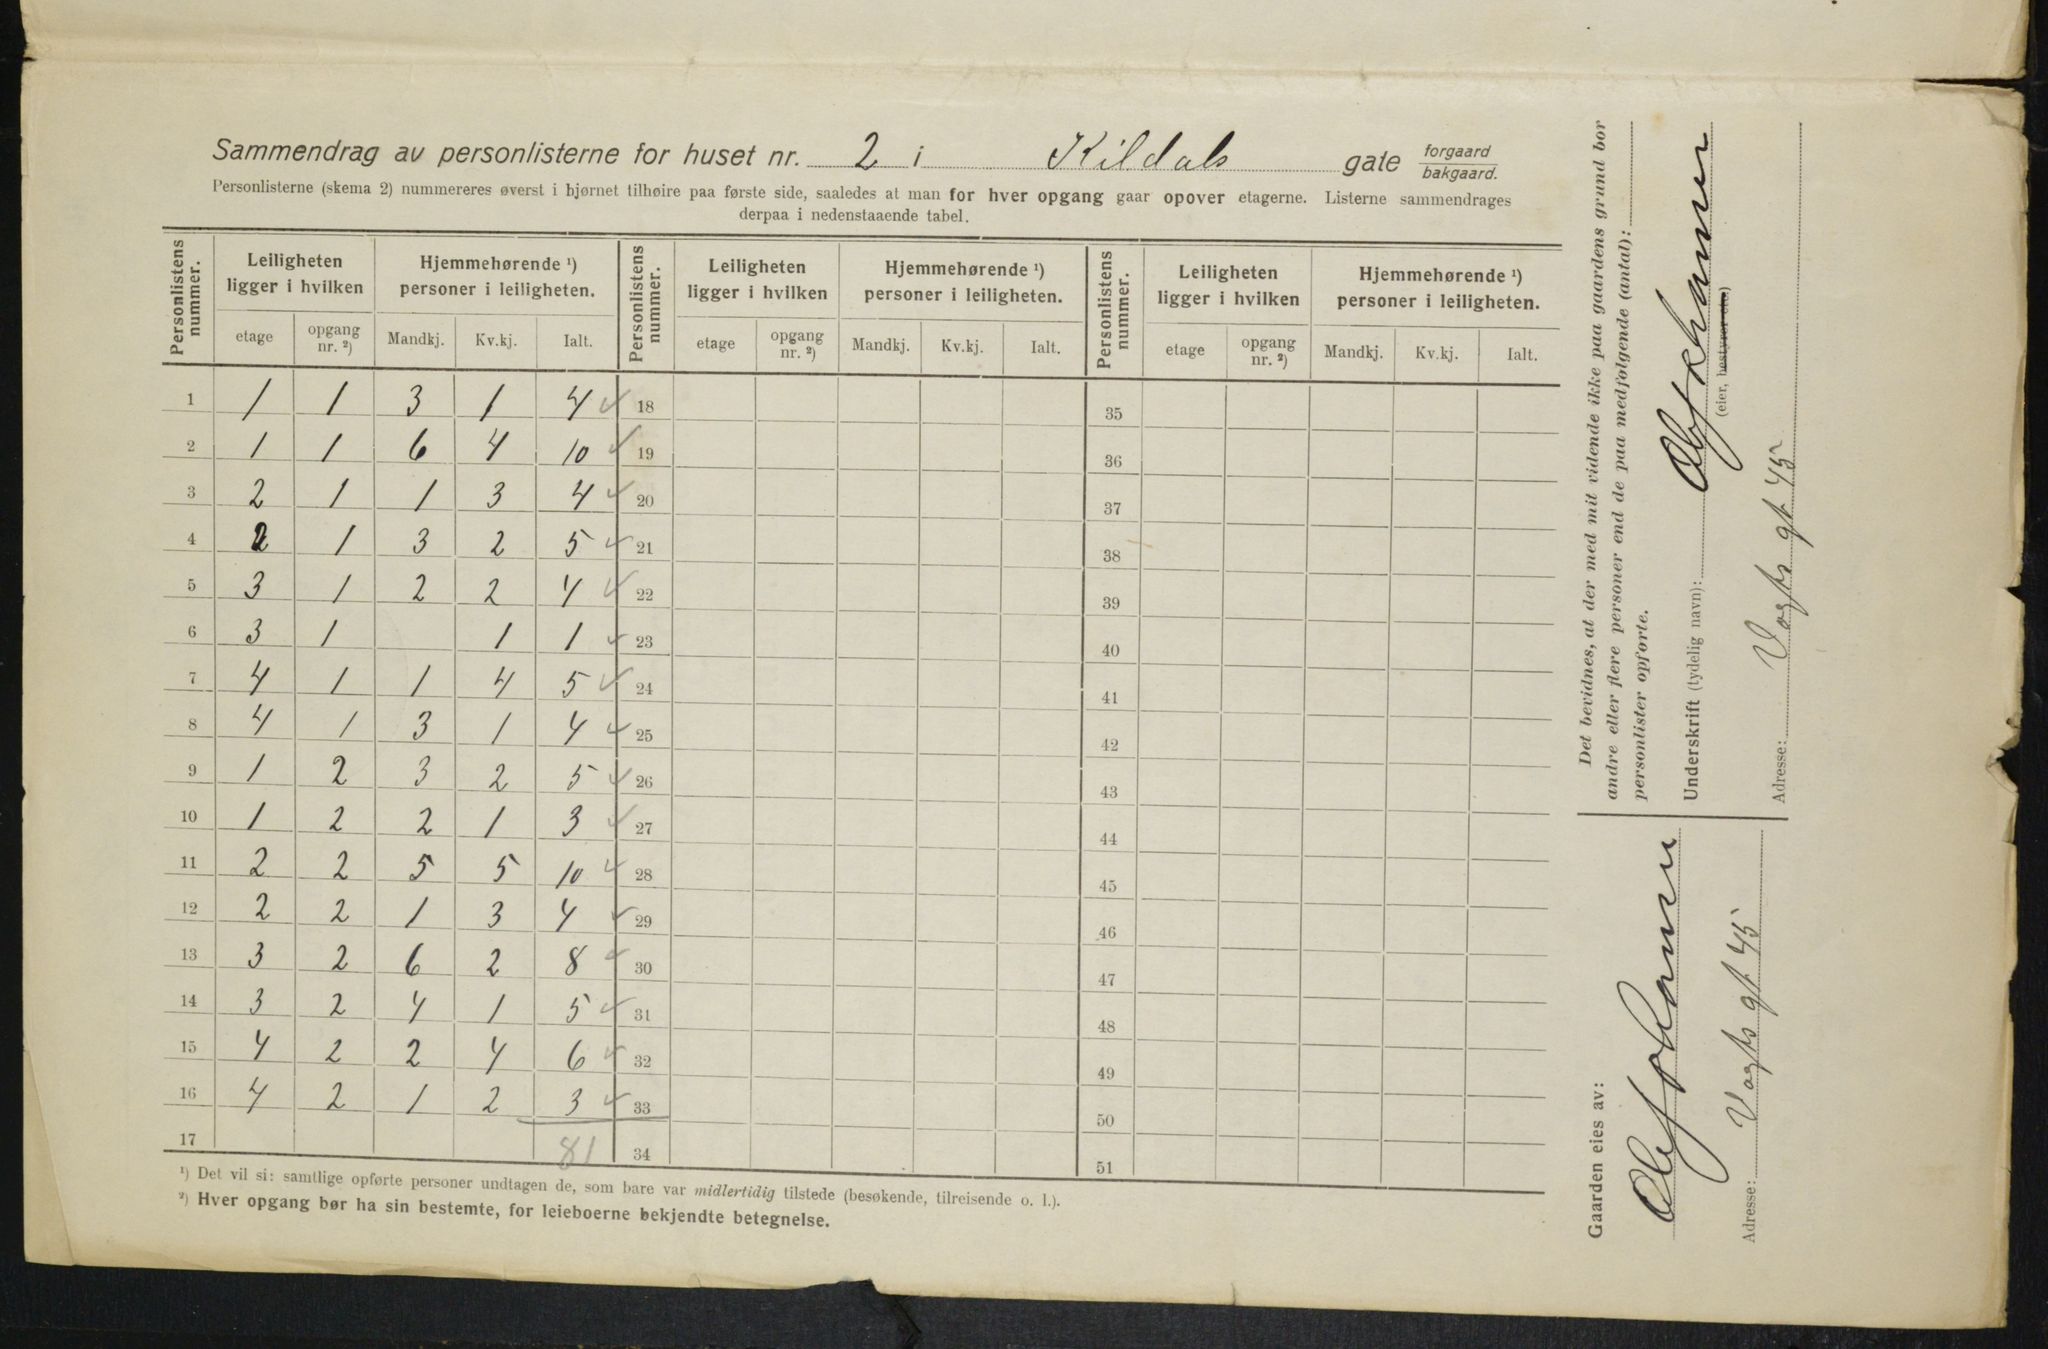 Sammendrag av personlisterne for huset nr. 2 i Kildals gate forgaard / bakgaard.
Personlisterne (skema 2) nummereres øverst i hjørnet tilhøire paa første side, saaledes at man for hver opgang gaar opover etagerne. Listerne sammendrages
derpaa i nedenstaaende tabel.
Personlistens nummer. Leiligheten ligger i hvilken Hjemmehørende ¹) personer i leiligheten. Personlistens nummer. Leiligheten ligger i hvilken Hjemmehørende ¹) personer i leiligheten. Personlistens nummer. Leiligheten ligger i hvilken Hjemmehørende ¹) personer i leiligheten.
etage opgang nr. ²) Mandkj. Kv.kj. Ialt. etage opgang nr. ²) Mandkj. Kv.kj. Ialt. etage opgang nr. ²) Mandkj. Kv.kj. Ialt.
1 1 1 3 1 4 ✓ 18 35
2 1 1 6 4 10 ✓ 19 36
3 2 1 1 3 4 ✓ 20 37
4 2 1 3 2 5 ✓ 21 38
5 3 1 2 2 4 ✓ 22 39
6 3 1 1 1 ✓ 23 40
7 4 1 1 4 5 ✓ 24 41
8 4 1 3 1 4 ✓ 25 42
9 1 2 3 2 5 ✓ 26 43
10 1 2 2 1 3 ✓ 27 44
11 2 2 5 5 10 ✓ 28 45
12 2 2 1 3 4 ✓ 29 46
13 3 2 6 2 8 ✓ 30 47
14 3 2 4 1 5 ✓ 31 48
15 4 2 2 4 6 ✓ 32 49
16 4 2 1 2 3 ✓ 33 50
17 81 34 51
¹) Det vil si: samtlige opførte personer undtagen de, som bare var midlertidig tilstede (besøkende, tilreisende o. l.).
²) Hver opgang bør ha sin bestemte, for leieboerne bekjendte betegnelse.
Det bevidnes, at der med mit vidende ikke paa gaardens grund bor
andre eller flere personer end de paa medfølgende (antal):
personlister opførte.
Underskrift (tydelig navn):
(eier, bestyrer etc.)
Adresse: Vogts gt 45
Gaarden eies av:
Adresse: Vogts gt 45